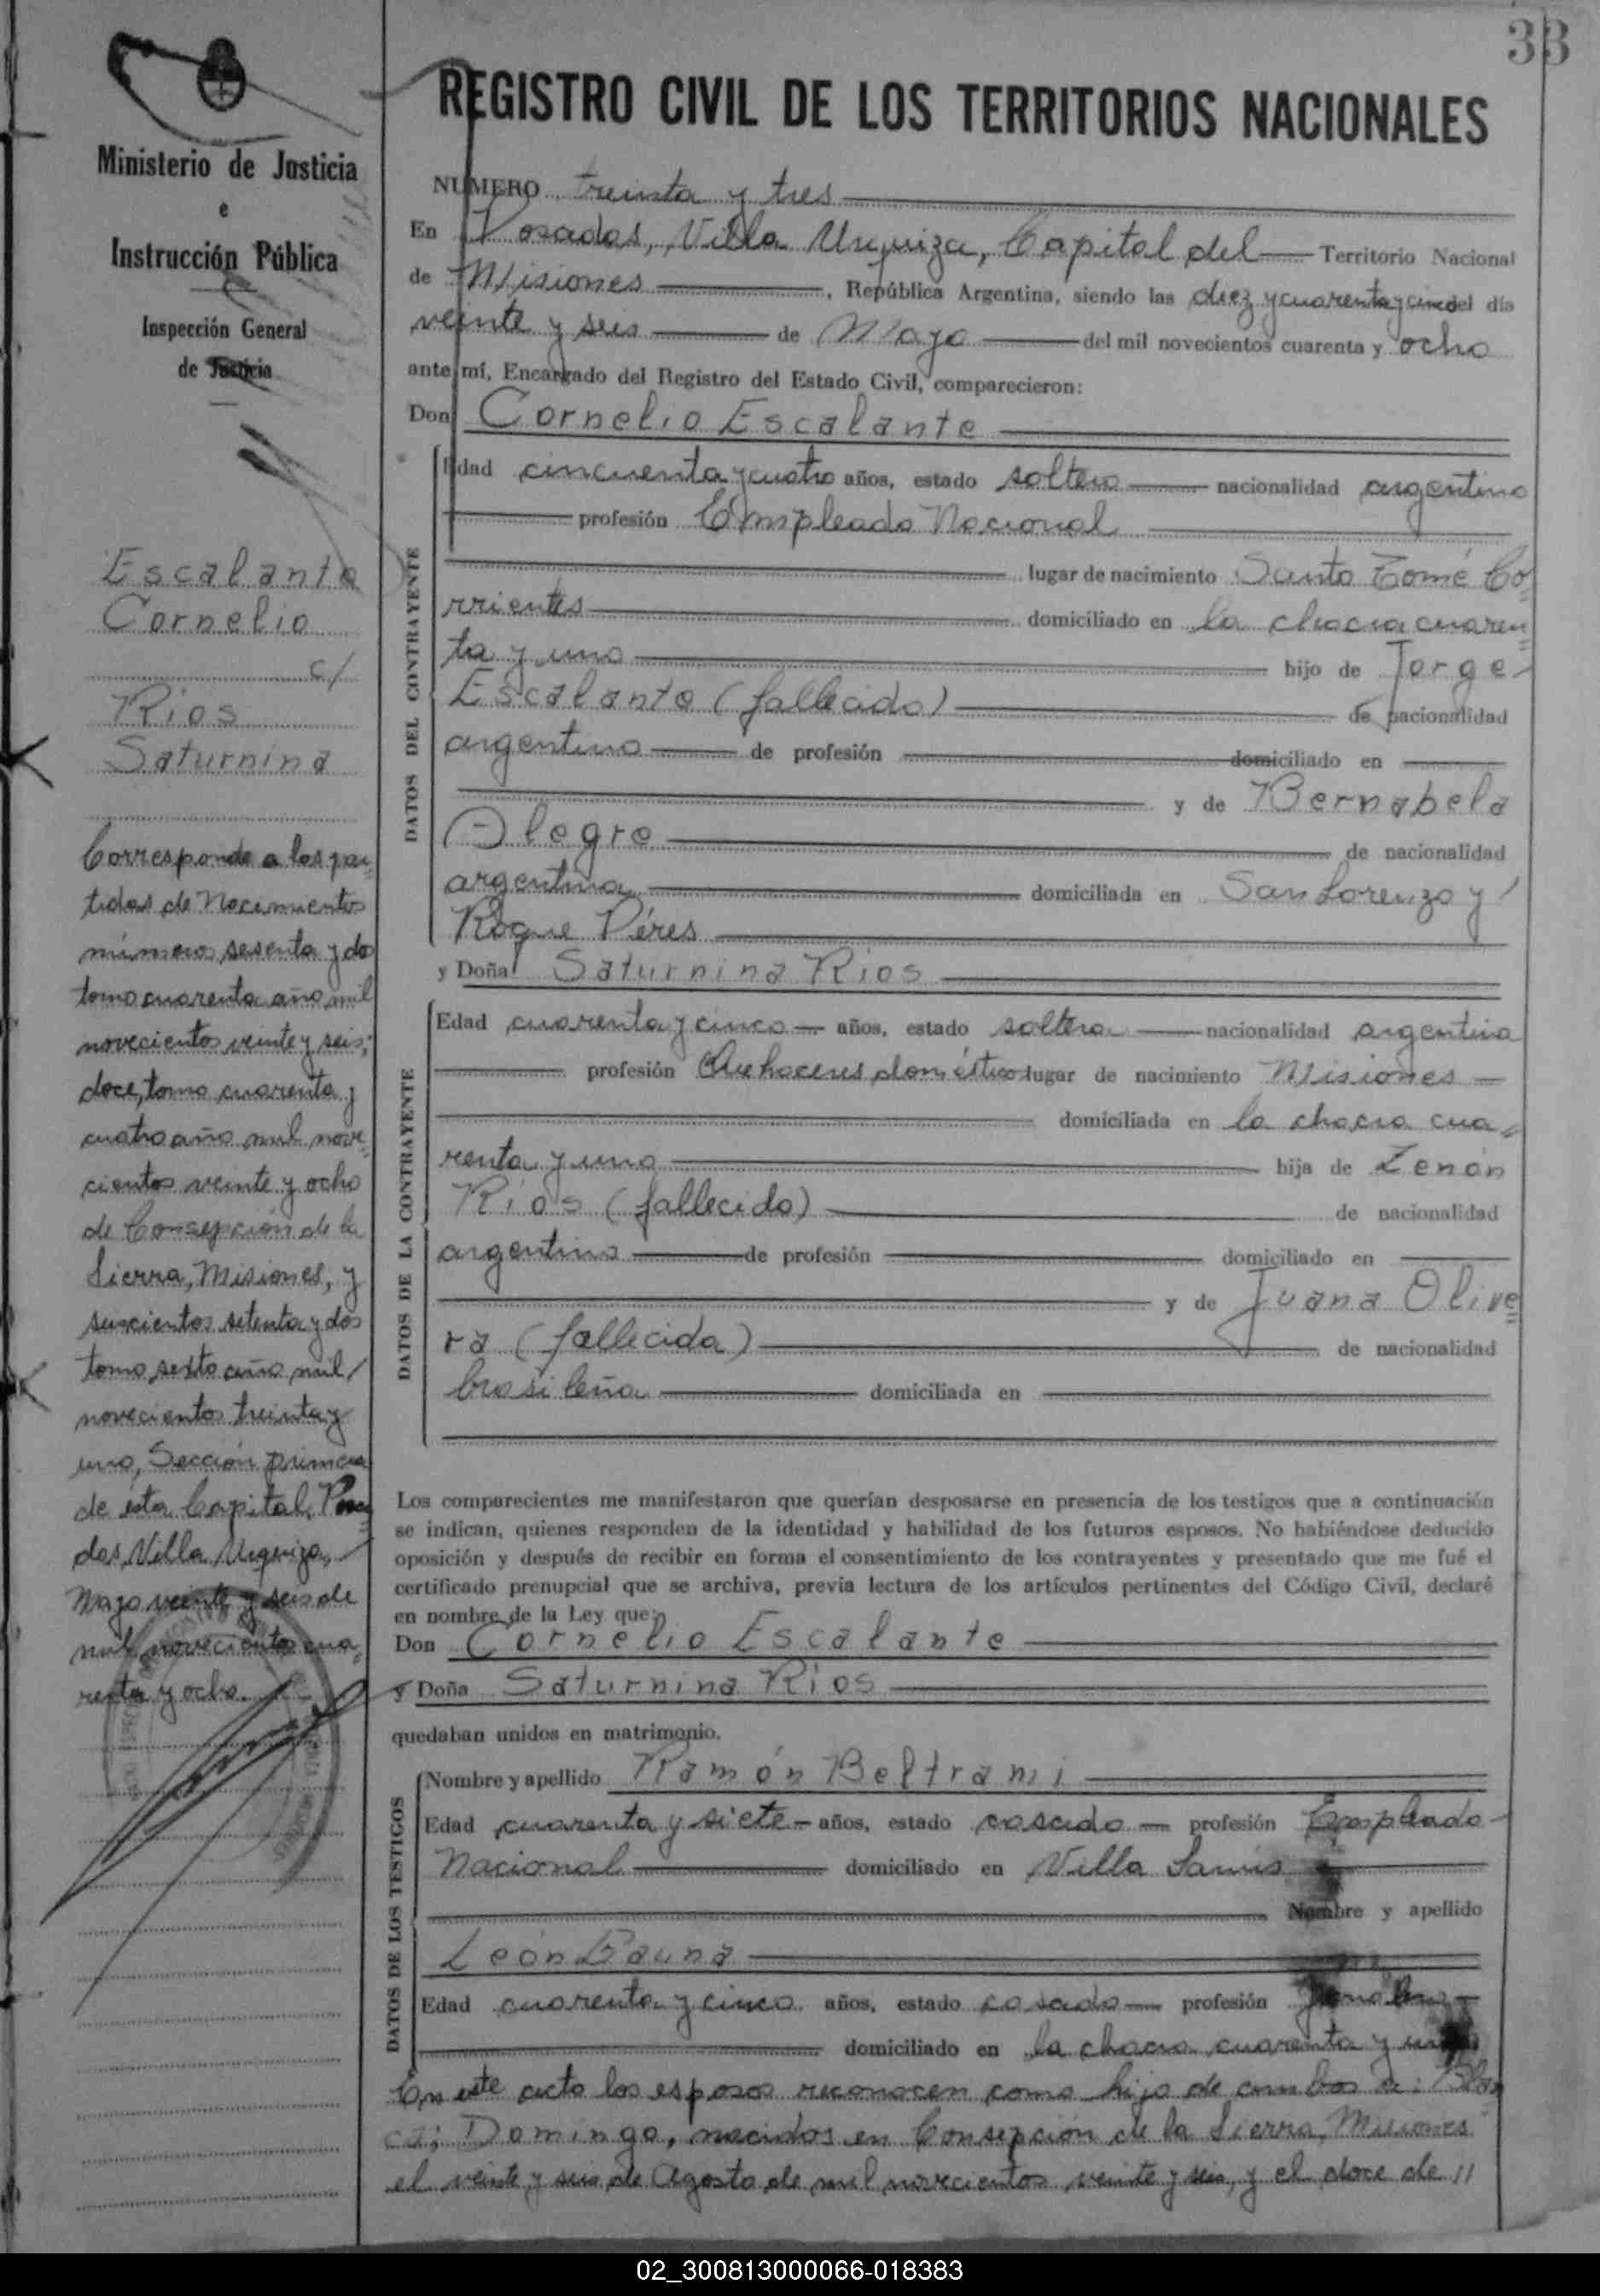 33
Ministerio de Justicia
e
Instrucción Pública
Inspección General
de Justicia
Escalante
Cornelio
c/
Rios
Saturnina
Corresponde a las par=
tidas de Nacimientos
números sesenta y dos
tomo cuarenta año mil
novecientos veinte y seis;
doce, tomo cuarenta y
cuatro año mil nove=
cientos veinte y ocho
de Consepción de la
Sierra, Misiones, y
suscientos setenta y dos
tomo sexto año mil
novecientos treinta y
uno, Sección primera
de ésta Capital, Posa=
das, Villa Urquiza,
Mayo veinte y seis de
mil novecientos cua=
renta y ocho.
REGISTRO CIVIL DE LOS TERRITORIOS NACIONALES
NUMERO treinta y tres
En Posadas, Villa Urquiza, Capital del Territorio Nacional
de Misiones, República Argentina, siendo las diez y cuarenta y cinco del día
veinte y seis de Mayo del mil novecientos cuarenta y ocho
ante mí, Encargado del Registro del Estado Civil, comparecieron:
Don Cornelio Escalante
DATOS DEL CONTRAYENTE
Edad cincuenta y cuatro años, estado soltero nacionalidad argentino
profesión Empleado Nacional
lugar de nacimiento Santo Tomé Co=
rrientes domiciliado en la chacra cuaren=
ta y uno hijo de Jorge
Escalante (fallecido) de nacionalidad
argentino de profesión domiciliado en
y de Bernabela
Alegre de nacionalidad
argentina domiciliada en San Lorenzo y
Roque Péres
y Doña Saturnina Rios
DATOS DE LA CONTRAYENTE
Edad cuarenta y cinco años, estado soltera nacionalidad argentina
profesión Quehaceres domésticos lugar de nacimiento Misiones
domiciliada en la chacra cua=
renta y uno hija de Zenón
Ríos (fallecido) de nacionalidad
argentino de profesión domiciliado en
y de Juana Olive=
ra (fallecida) de nacionalidad
brasileña domiciliada en
Los comparecientes me manifestaron que querían desposarse en presencia de los testigos que a continuación
se indican, quienes responden de la identidad y habilidad de los futuros esposos. No habiéndose deducido
oposición y después de recibir en forma el consentimiento de los contrayentes y presentado que me fué el
certificado prenupcial que se archiva, previa lectura de los artículos pertinentes del Código Civil, declaré
en nombre de la Ley que:
Don Cornelio Escalante
y Doña Saturnina Rios
quedaban unidos en matrimonio.
DATOS DE LOS TESTIGOS
Nombre y apellido Ramón Beltrami
Edad cuarenta y siete años, estado casado profesión Empleado
Nacional domiciliado en Villa
Nombre y apellido
León Gauna
Edad cuarenta y cinco años, estado casado profesión
domiciliado en la chacra cuarenta y uno
En este acto los esposos reconocen como hijo de ambos a: Blan
ca; Domingo, nacidos en Consepción de la Sierra, Misiones
el veinte y seis de Agosto de mil novecientos veinte y seis, y el doce de //
02_300813000066-018383